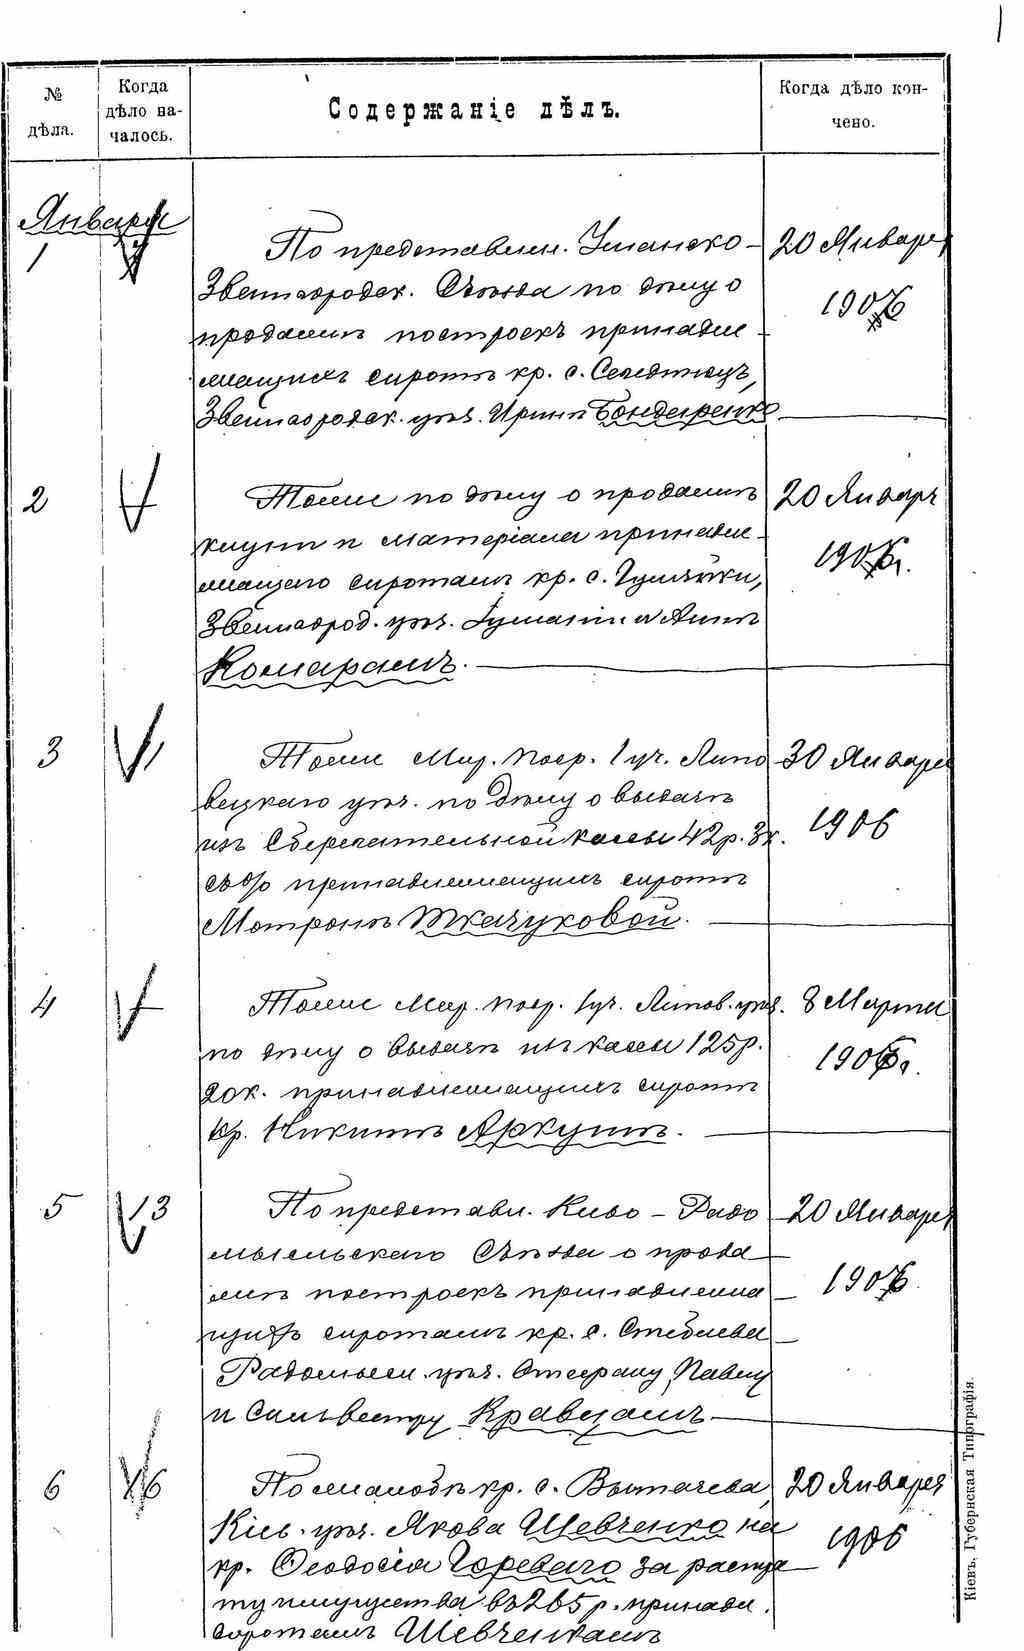 № дѣла.
Когда дѣло началось.
Содержаніе дѣлъ.
Когда дѣло кончено.
Января
1
По представлен. Уманско-
Звенигородск. Съѣзда по дѣлу о
продажѣ построекъ принадле-
жащихъ сиротѣ кр. с.
Звенигородск. уѣз. Иринѣ Бондаренко
20 Января
1906
2
Тоже по дѣлу о продажѣ
и матеріала принадле-
жащаго сиротамъ кр. с.
Звенигород. уѣз. и Аннѣ
Комарамъ.
20 Январ
1906 г.
3
11
Тоже Мир. Поср. 1 уч. Липо
вецкаго уѣз. по дѣлу о выдачѣ
изъ Сберегательной кассы 42 р. 3 к.
съ % принадлежащихъ сиротѣ
Мотронѣ Ткачуковой.
30 Января
1906
4
Тоже Мир. поср. 1 уч. Липов. уѣз.
по дѣлу о выдачѣ изъ кассы 125 р.
20 к. принадлежащихъ сиротѣ
кр. Никитѣ Аркушѣ.
8 Марта
1906 г.
5
13
По представл. Киево-Радо
мысльскаго Съѣзда о прода
жѣ построекъ принадлежа
щихъ сиротамъ кр. с. Ставлева
Радомысл. уѣз. Павлу
и Сильвестру Кравцамъ
20 Января
1906.
6
16
По жалобѣ кр. с. Вытачева,
Кіев. уѣз. Якова Шевченко на
кр. Ѳеодосія Гореваго за растра
ту имущества въ 265 р. принадл.
сиротамъ Шевченкамъ
20 Января
1906
Кіевъ, Губернская Типографія.